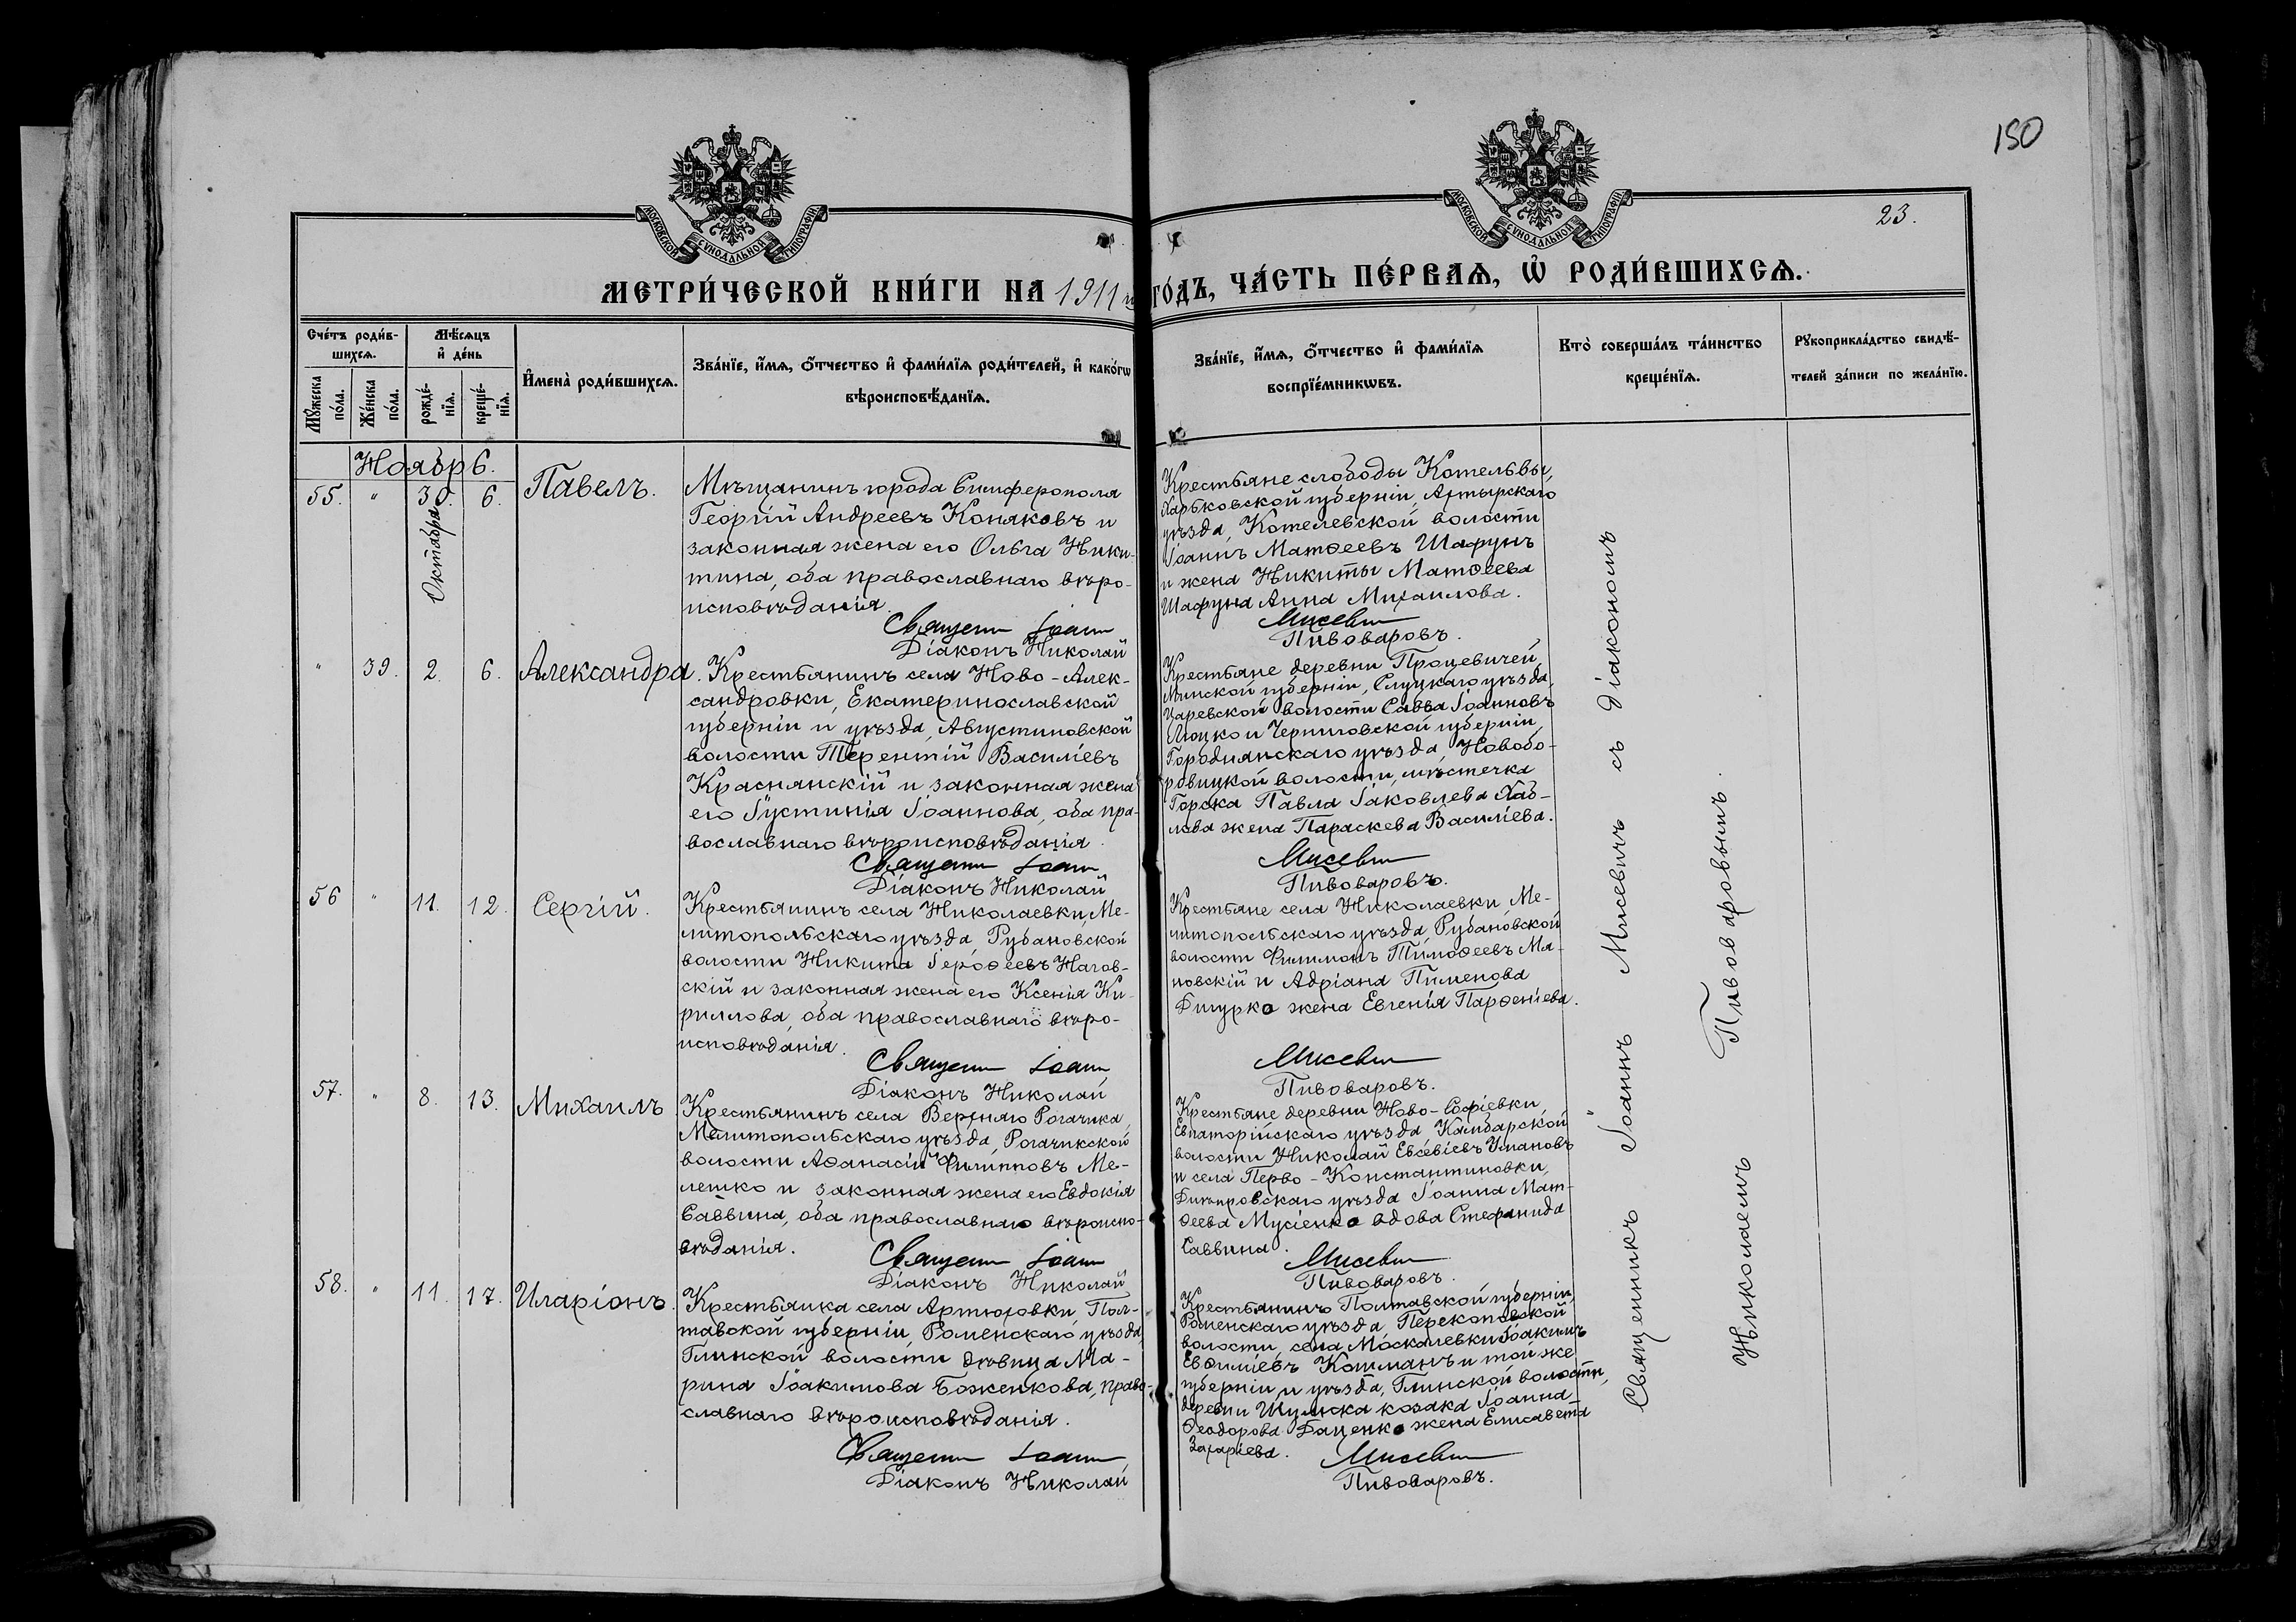 150
23.
МОСКОВСКОЙ СѴНОДАЛЬНОЙ ТИПОГРАФІИ
МОСКОВСКОЙ СѴНОДАЛЬНОЙ ТИПОГРАФІИ
МЕТРИ́ЧЕСКОЙ КНИ́ГИ НА 1911 й ГО́ДЪ, ЧА́СТЬ ПЕ́РВАѦ, Ѿ РОДИ́ВШИХСѦ.
Сче́тъ роди́в-
шихсѧ.
Мѣ́сѧцъ
и҆ де́нь
Мꙋ́жеска
по́ла.
Же́нска
по́ла.
рожде́-
нїѧ.
креще́-
нїѧ.
И҆мена̀ роди́вшихсѧ.
Зва́нїе, и҆́мѧ, ѻ҆́тчество и҆ фами́лїѧ роди́телей, и҆ како́гѡ
вѣроисповѣ́данїѧ.
Зва́нїе, и҆́мѧ, ѻ҆́тчество и҆ фами́лїѧ
воспрїе́мникѡвъ.
Кто̀ соверша́лъ та́инство
креще́нїѧ.
Рꙋкоприкла́дство свидѣ́-
телей за́писи по жела́нїю.
Ноябрь
6.
55. " 30. 6. Павелъ.
Октября
Мѣщанинъ города Симферополя
Георгій Андреевъ Коняковъ и
законная жена его Ольга Ники-
тина, оба православнаго вѣро-
исповѣданія.
Священн Іоанн
Діаконъ Николай
Крестьяне слободы Котельвы,
Харьковской губерніи, Ахтырскаго
уѣзда, Котелевской волости
Іоаннъ Матѳеевъ Шафунъ
и жена Никиты Матѳеева
Шафуна Анна Михаилова.
Мисевич
Пивоваровъ.
" 39. 2. 6. Александра.
Крестьянинъ села Ново-Алек-
сандровки, Екатеринославской
губерніи и уѣзда, Августиновской
волости Терентій Василіевъ
Краснянскій и законная жена
его Іустинія Іоаннова, оба пра-
вославнаго вѣроисповѣданія.
Священн Іоанн
Діаконъ Николай
Крестьяне деревни Процевичей,
Минской губерніи, Слуцкаго уѣзда,
Царевской волости Савва Іоанновъ
Люцко и Черниговской губерніи,
Городнянскаго уѣзда, Новобо-
ровицкой волости, мѣстечка
Горска Павла Іаковлева Хаб-
лова жена Параскева Василіева.
Мисевич
Пивоваровъ.
56 " 11. 12. Сергій.
Крестьянинъ села Николаевки, Ме-
литопольскаго уѣзда, Рубановской
волости Никита Іероѳеевъ Нагов-
скій и законная жена его Ксенія Ки-
риллова, оба православнаго вѣро-
исповѣданія.
Священн Іоанн
Діаконъ Николай
Крестьяне села Николаевки, Ме-
литопольскаго уѣзда, Рубановской
волости Филимонъ Тимоѳеевъ Ма-
новскій и Адріана Пименова
Дигурко жена Евгенія Парѳеніева.
Мисевич
Пивоваровъ.
57. " 8. 13. Михаилъ
Крестьянинъ села Верхняго Рогачика,
Мелитопольскаго уѣзда, Рогачикской
волости Аѳанасій Филипповъ Ме-
лешко и законная жена его Евдокія
Саввина, оба православнаго вѣроиспо-
вѣданія.
Священн Іоанн
Діаконъ Николай
Крестьяне деревни Ново-Софіевки,
Евпаторійскаго уѣзда Камбарской
волости Николай Евсевіевъ Умановъ
и села Перво-Константиновки,
Днѣпровскаго уѣзда Іоанна Мат-
ѳеева Мусіенко вдова Стефанида
Саввина.
Мисевич
Пивоваровъ.
58. " 11. 17. Иларіонъ.
Крестьянка села Артюховки, Пол-
тавской губерніи, Роменскаго уѣзда,
Глинской волости дѣвица Ма-
рина Іоакимова Боженкова, право-
славнаго вѣроисповѣданія.
Священн Іоанн
Діаконъ Николай
Крестьянинъ Полтавской губерніи,
Роменскаго уѣзда, Перекоповской
волости, села Москалевки Іоакимъ
Евѳиміевъ Кошманъ и той же
губерніи и уѣзда, Глинской волости,
деревни Шумска козака Іоанна
Ѳеодорова Баценко жена Елисавета
Захаріева.
Мисевич
Пивоваровъ.
Священникъ Іоаннъ Мисевичъ съ діакономъ
Николаемъ Пивоваровымъ.